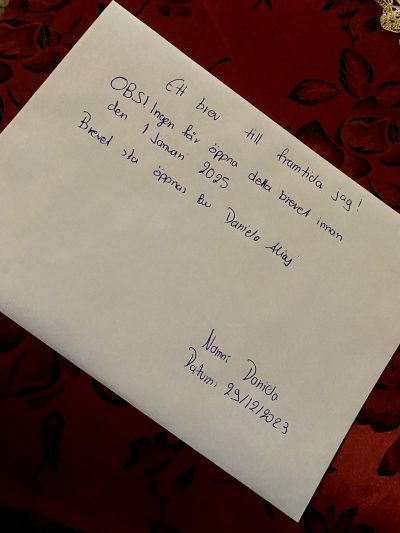 Ett brev till framtida jag!
OBS! Ingen får öppna detta brevet innan
den 1 Januari 2025
Brevet ska öppnas av Daniela
Namn: Daniela
Datum: 29/12/2023